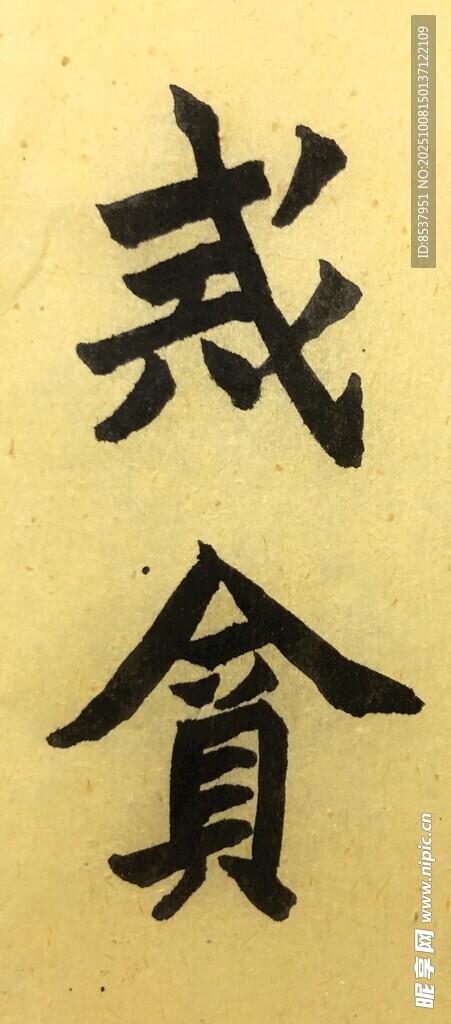 戒
贪
ID:8537951 NO:20251008150137122109
昵享网 www.nipic.cn